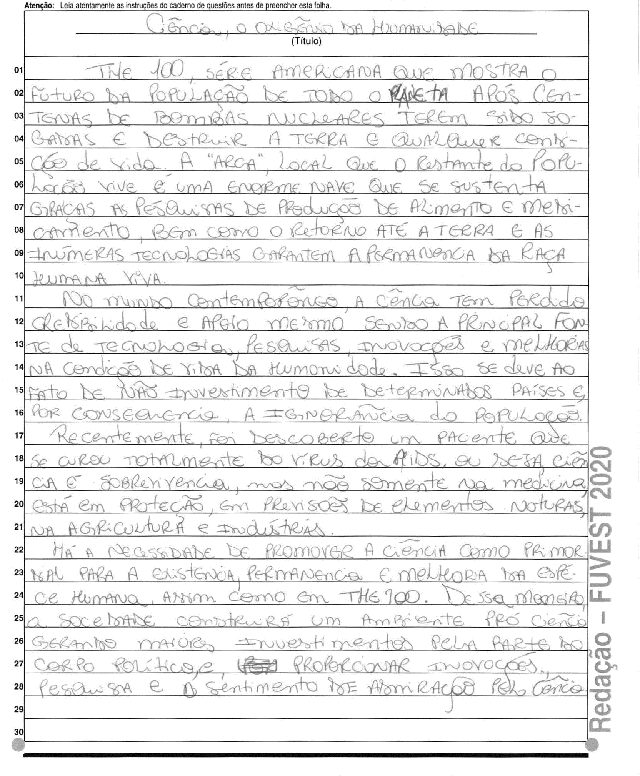 Atenção: Leia atentamente as instruções do caderno de questões antes de preencher esta folha.
Ciência, o oxigênio da humanidade
(Título)
01 THE 100, SÉRIE AMERICANA QUE MOSTRA O
02 FUTURO DA POPULAÇÃO DE TODO O PLANETA APÓS CEN-
03 TENAS DE BOMBAS NUCLEARES TEREM SIDO JO-
04 GADAS E DESTRUIR A TERRA E QUALQUER CONDI-
05 ÇÃO de vida. A "ARCA", LOCAL QUE O Restante do POPU-
06 lação VIVE É UMA ENORME NAVE QUE SE SUSTENTA
07 GRAÇAS AS PESQUISAS DE PRODUÇÃO DE ALIMENTO E MEDI-
08 CAMENTO, BEM COMO O RETORNO ATÉ A TERRA E AS
09 INÚMERAS TECNOLOGIAS GARANTEM A PERMANENCIA DA RAÇA
10 HUMANA VIVA.
11 NO MUNDO CONTEMPORÂNEO, A CIÊNCIA TEM PERDIDO
12 CREDIBILIDADE E APOIO MESMO SENDO A PRINCIPAL FON-
13 TE de TECNOLOGIA, PESQUISAS, INOVAÇÕES E MELHORIAS
14 NA CONDIÇÃO DE VIDA DA HUMANIDADE. ISSO SE DEVE AO
15 FATO DE NÃO INVESTIMENTO DE DETERMINADOS PAÍSES E,
16 POR CONSEQUENCIA, A IGNORÂNCIA da POPULAÇÃO.
17 RECENTEMENTE, FOI DESCOBERTO UM PACIENTE QUE
18 SE CUROU TOTALMENTE DO VÍRUS da AIDS, OU SEJA CIÊN
19 CIA É SOBREVIVENCIA, mas não somente na medicina,
20 ESTÁ EM PROTEÇÃO, EM PREVISÕES DE ELEMENTOS NATURAS,
21 NA AGRICULTURA E INDÚSTRIAS.
22 HÁ A NECESSIDADE DE PROMOVER A CIÊNCIA COMO PRIMOR-
23 DIAL PARA A EXISTENCIA, PERMANENCIA E MELHORIA DA ESPÉ-
24 CIE HUMANA, ASSIM COMO EM THE 100. DESSA MANEIRA,
25 a SOCEDADE CONSTRUIRÁ UM AMBIENTE PRÓ CIÊNCIA
26 GERANDO MAIORES INVESTIMENTOS PELA PARTE DO
27 CORPO POLÍTICO E, PROPORCIONAR INOVAÇÕES,
28 PESQUISA E O SENTIMENTO DE ADMIRAÇÃO PELO CIÊNCIA
29
30
Redação – FUVEST 2020